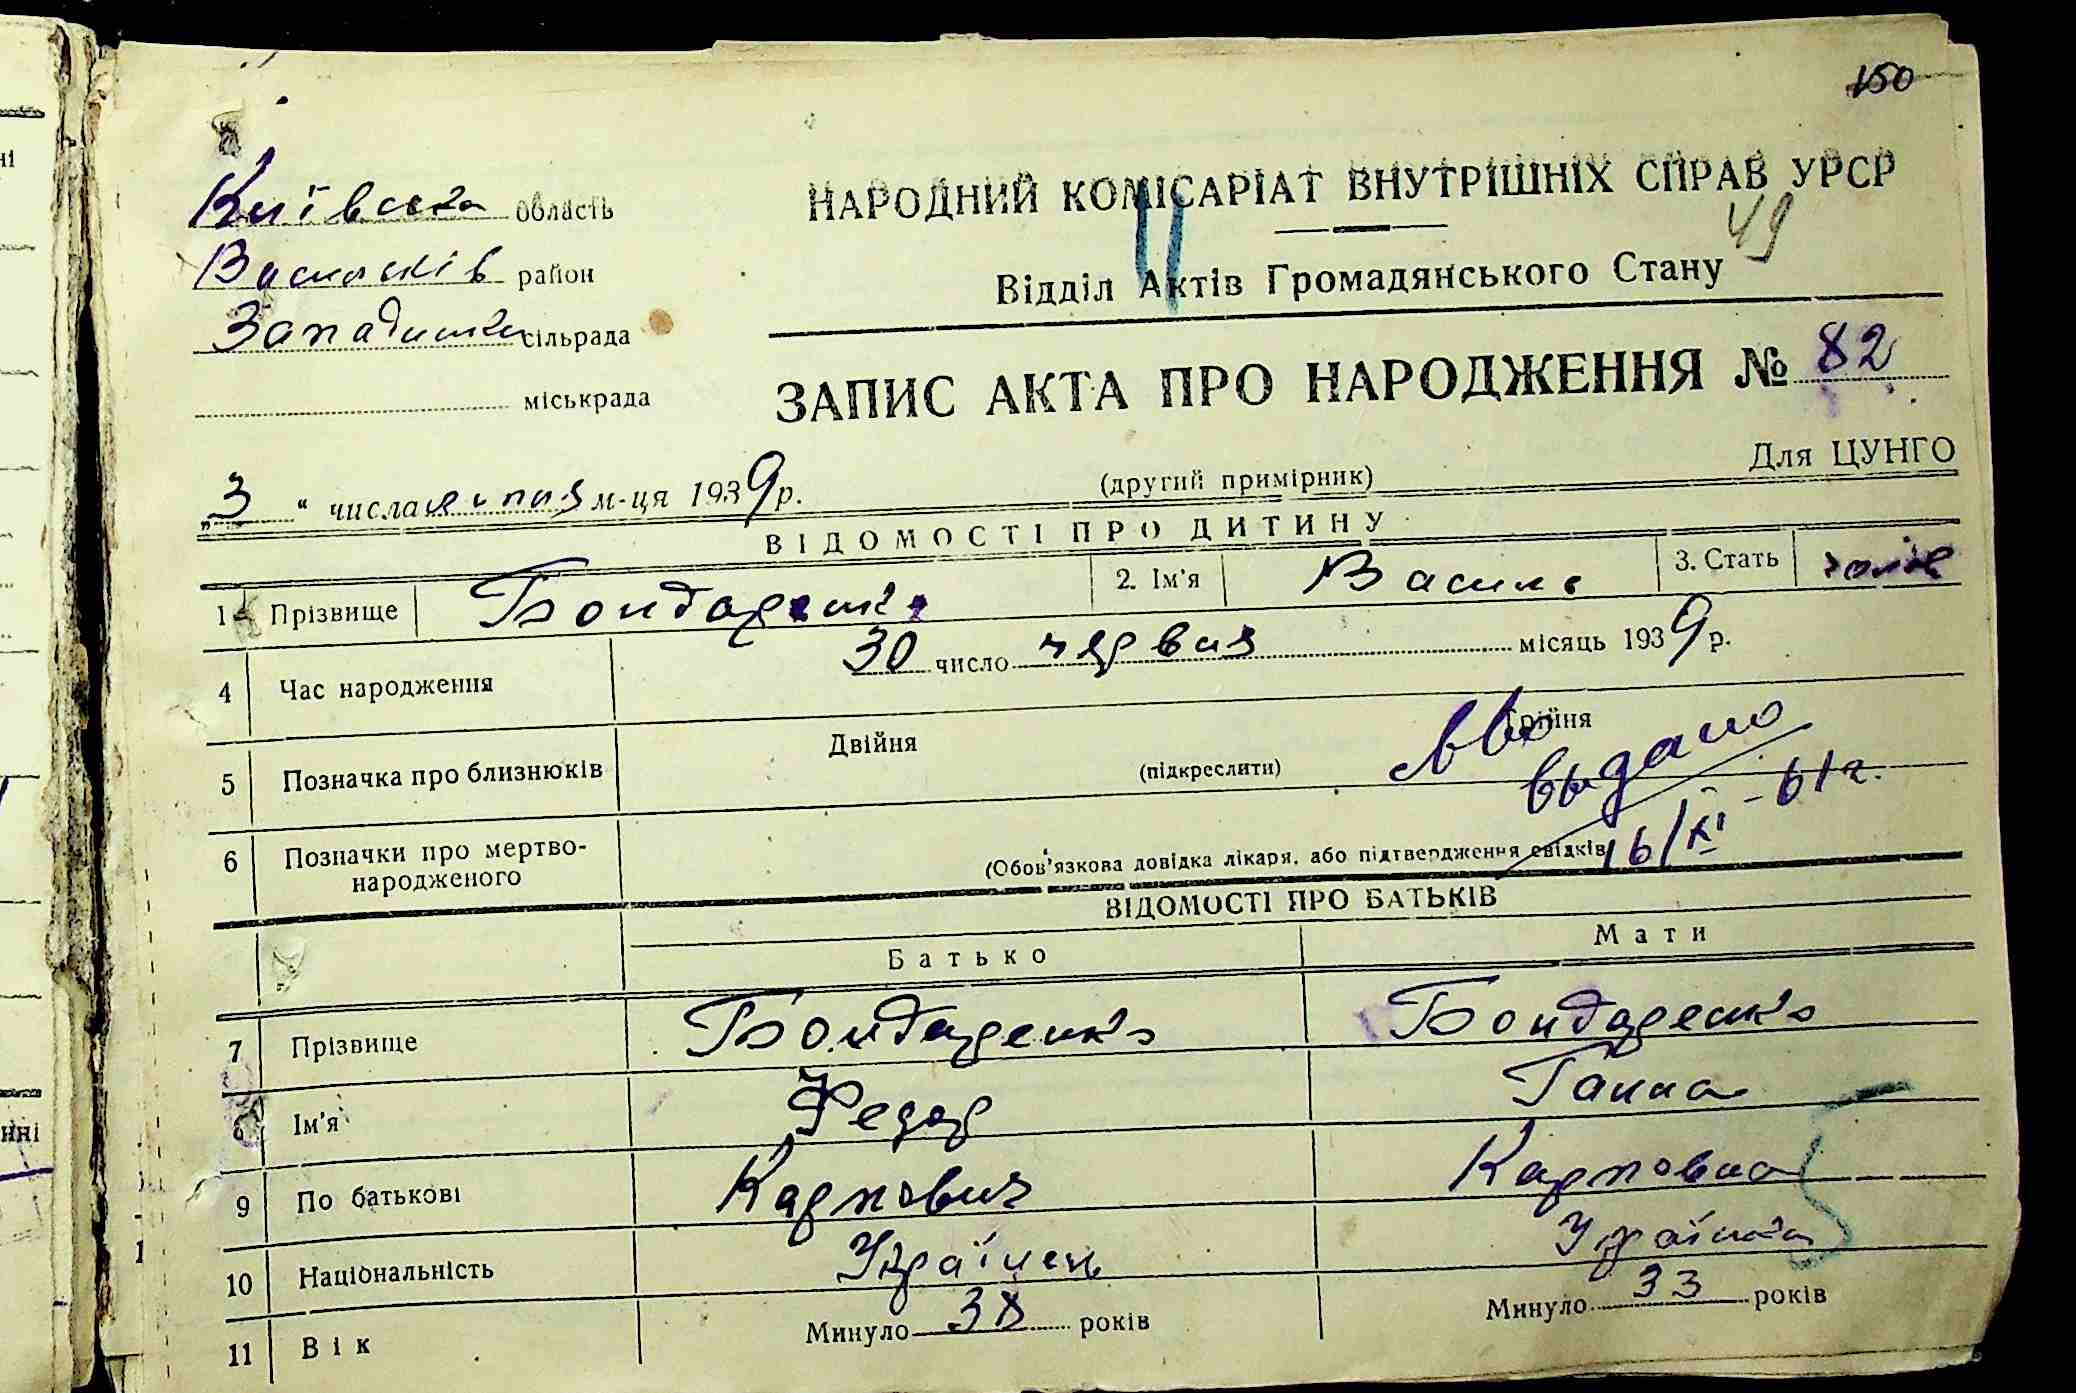 150
Київська область
НАРОДНИЙ КОМІСАРІАТ ВНУТРІШНІХ СПРАВ УРСР
49
Васильків район
Відділ Актів Громадянського Стану
сільрада
міськрада
ЗАПИС АКТА ПРО НАРОДЖЕННЯ № 82
Для ЦУНГО
„3“ числа липня м-ця 1939 р.
(другий примірник)
ВІДОМОСТІ ПРО ДИТИНУ
1 Прізвище Бондаренко 2. Ім'я Василь 3. Стать чолов
4 Час народження 30 число червня місяць 1939 р.
5 Позначка про близнюків Двійня (підкреслити) Трійня
выдано
16/XI-61 г.
6 Позначки про мертво-
народженого
(Обов'язкова довідка лікаря, або підтвердження свідків
ВІДОМОСТІ ПРО БАТЬКІВ
Батько Мати
7 Прізвище Бондаренко Бондаренко
8 Ім'я Федор Ганна
9 По батькові Карпович Карповна
10 Національність Українець Українка
11 Вік Минуло 38 років Минуло 33 років
нні